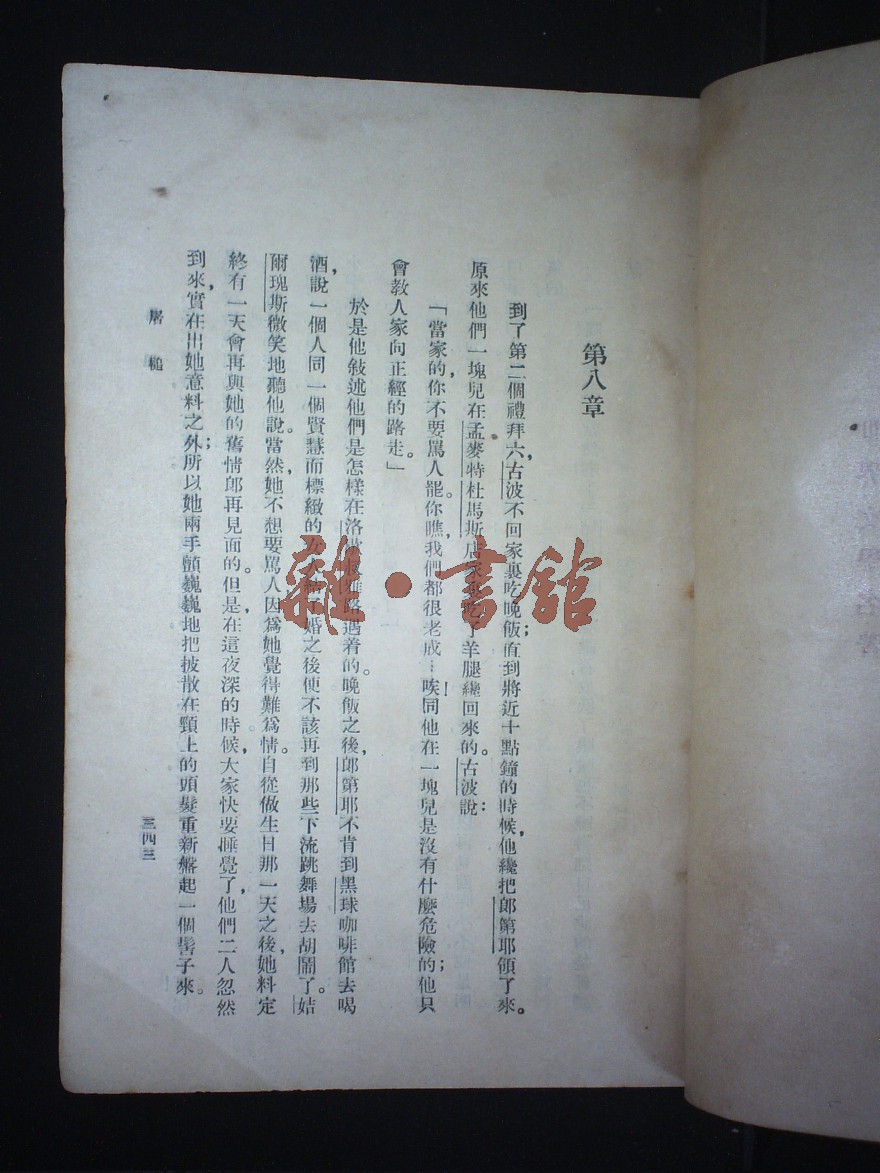 第八章
到了第二個禮拜六，古波不回家裏吃晚飯；直到將近十點鐘的時候，他纔把郎第耶領了來。
原來他們一塊兒在孟麥特杜馬斯店家裏吃了羊腿纔回來的。古波說：
「當家的，你不要罵人罷。你瞧，我們都很老成…唉！同他在一塊兒是沒有什麼危險的；他只
會教人家向正經的路走。」
於是他敍述他們是怎樣在洛 路遇着的。晚飯之後，郎第耶不肯到黑球咖啡館去喝
酒，說一個人同一個賢慧而標緻的女人結了婚之後便不該再到那些下流跳舞場去胡鬧了。姞
爾瑰斯微笑地聽他說。當然，她不想要罵人，因爲她覺得難爲情。自從做生日那一天之後，她料定
終有一天會再與她的舊情郎再見面的。但是，在這夜深的時候，大家快要睡覺了，他們二人忽然
到來，實在出她意料之外；所以她兩手顫巍巍地把披散在頸上的頭髮重新盤起一個髻子來。
屠槌
三四三
雜·書館